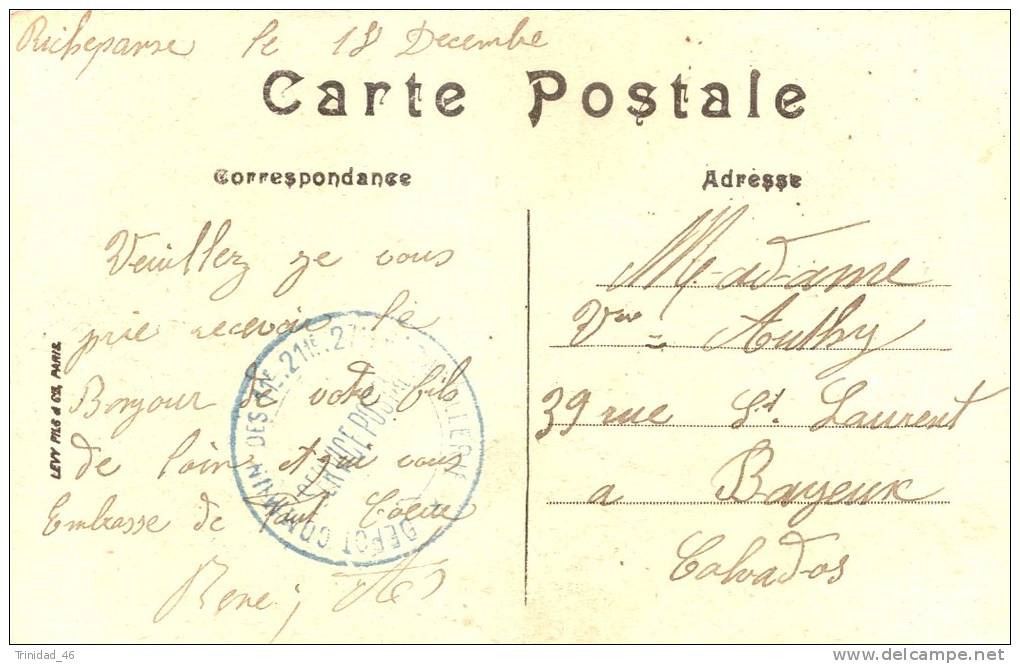 Richepanse le 18 Decembe
Carte Postale
Correspondance
Adresse
Veuillez je vous
prie recevoir le
Bonjour de votre fils
de loin et qui vous
Embrasse de tout Coeur
René
Madame
Vve Authy
39 rue St Laurent
a Bayeux
Calvados
LEVY FILS & Cie, PARIS
DEPOT COMMUN DES 21e. 27
Trinidad_46
delcampe.net